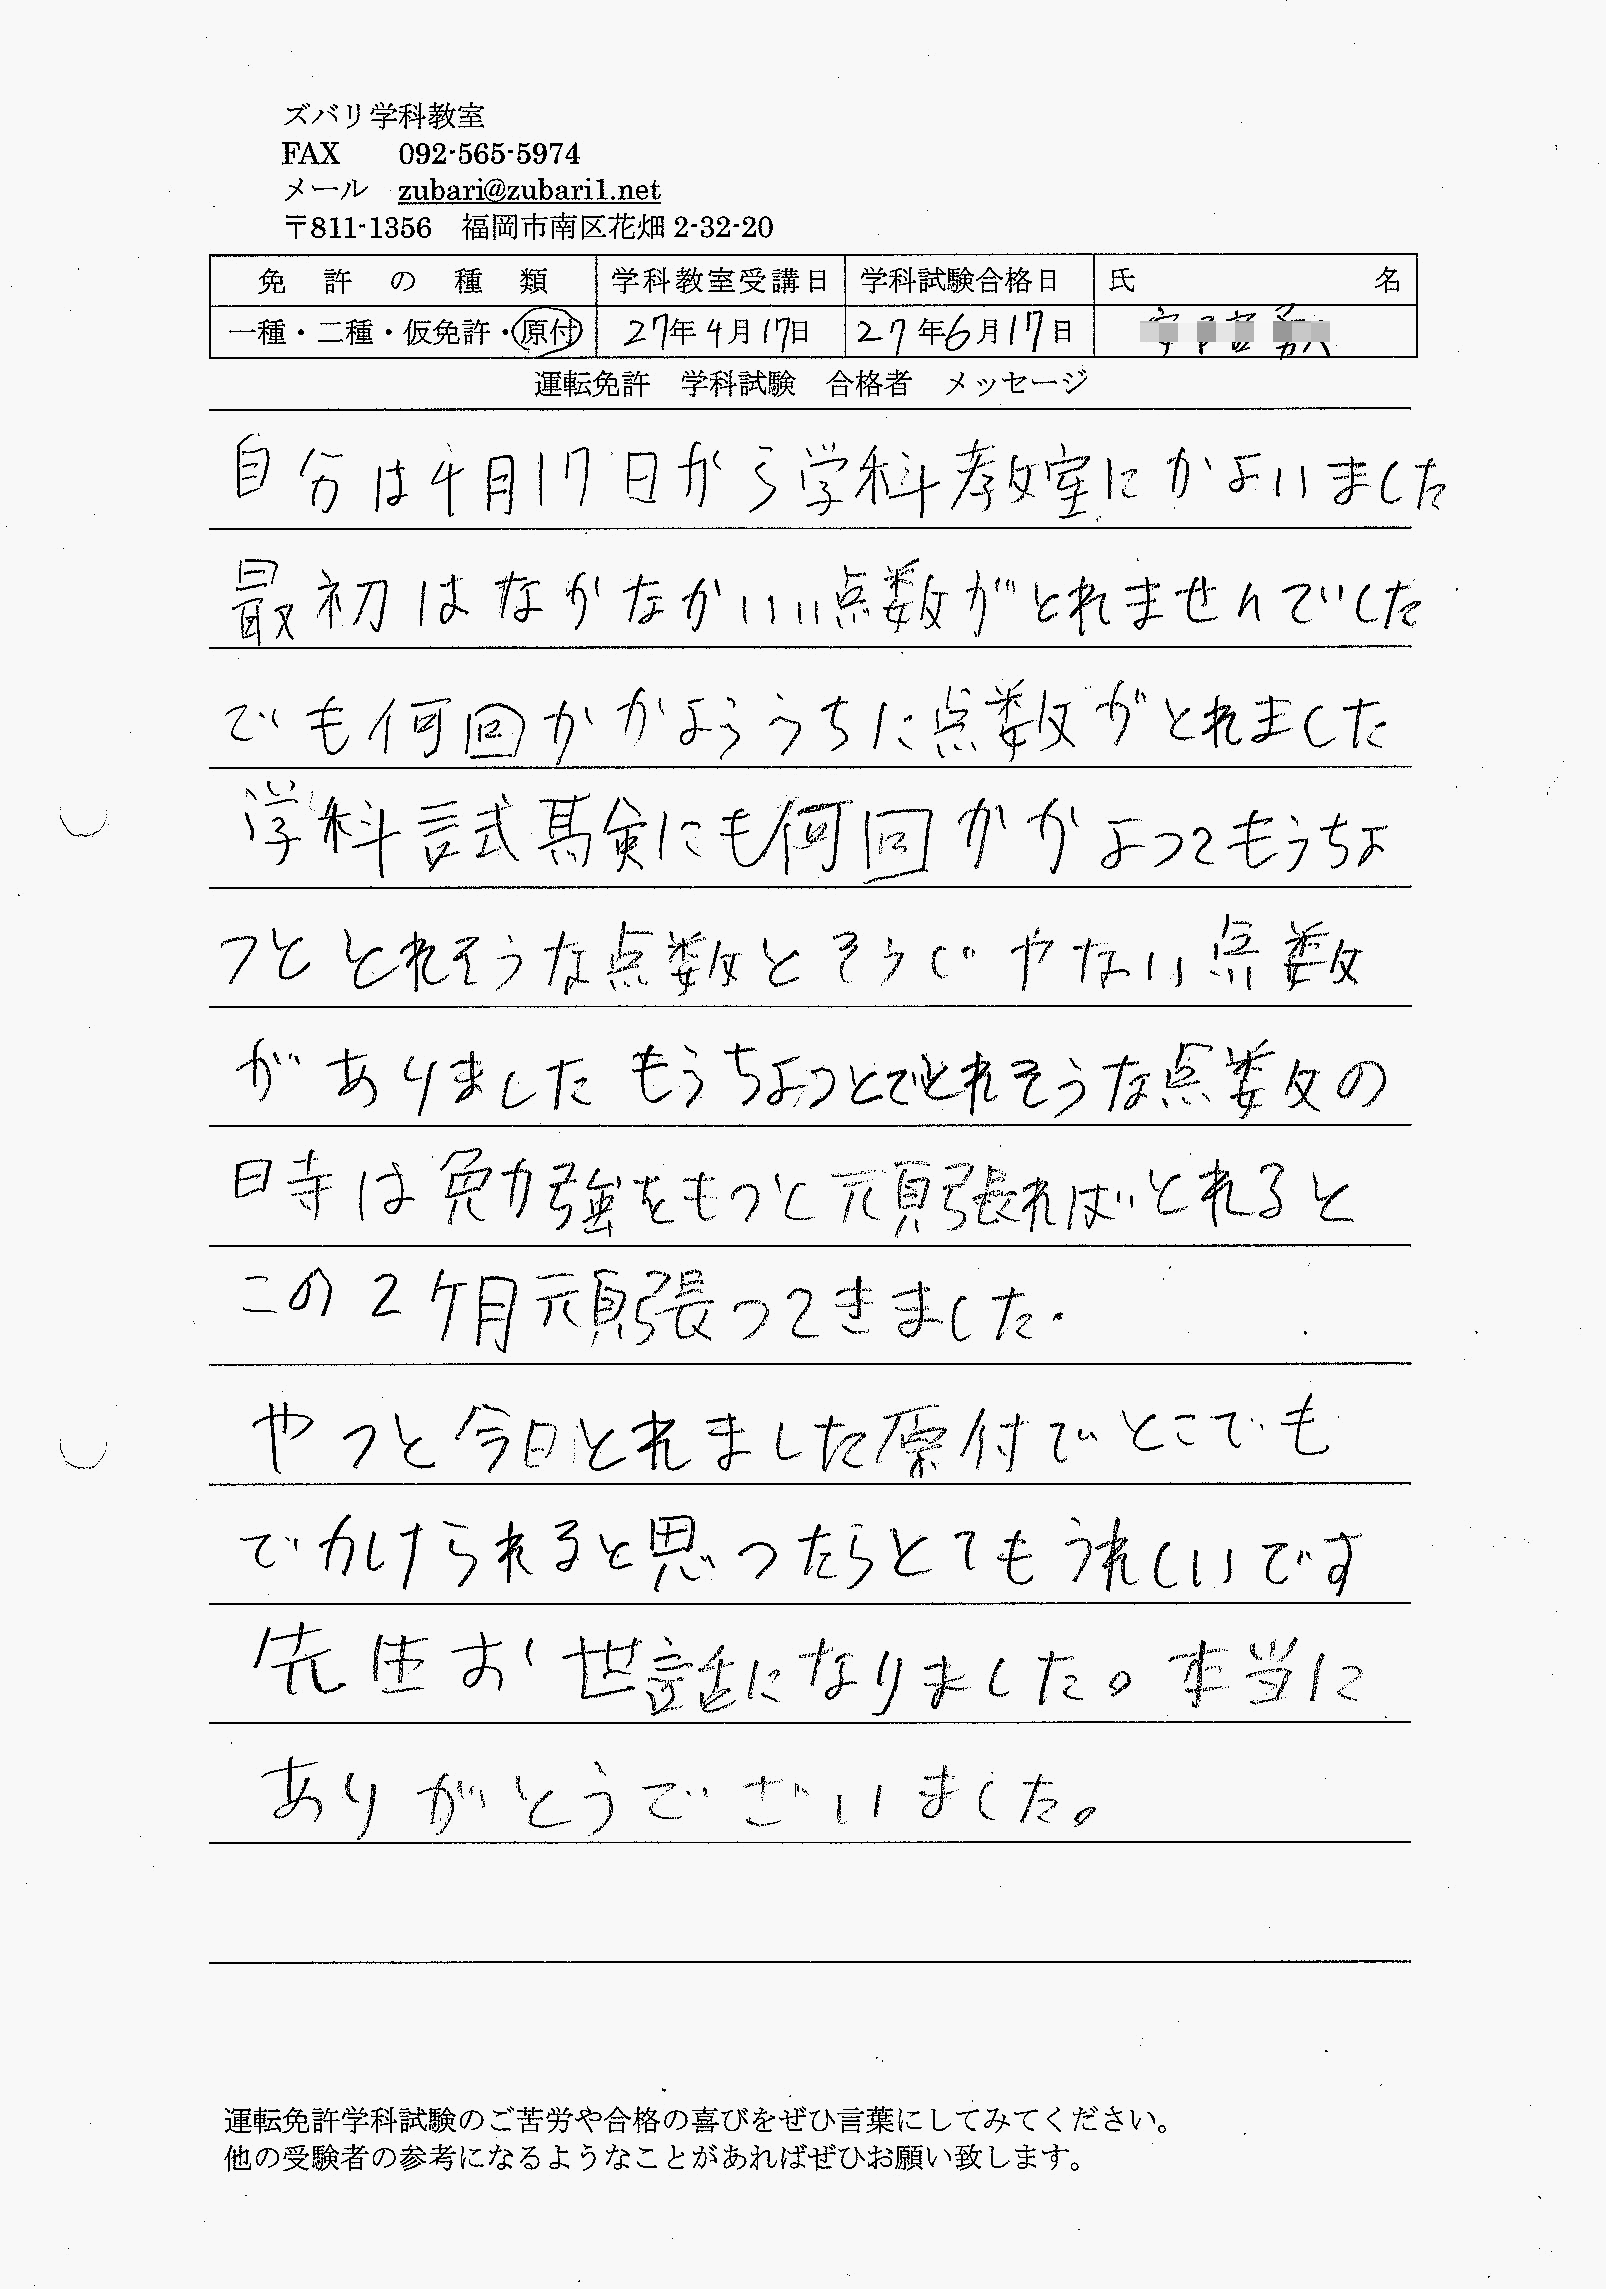 ズバリ学科教室
FAX　092-565-5974
メール　zubari@zubari1.net
〒811-1356　福岡市南区花畑 2-32-20
免許の種類　学科教室受講日　学科試験合格日　氏名
一種・二種・仮免許・原付　27年4月17日　27年6月17日
運転免許　学科試験　合格者　メッセージ
自分は4月17日から学科教室にかよいました
最初はなかなかいい点数がとれませんでした
でも何回かかようううちに点数がとれました
学科試験にも何回かかよってもうちょ
っととれそうな点数とそうじゃない点数
がありましたもうちょっとでとれそうな点数の
時は勉強をもっと頑張ればとれると
この2ケ月頑張ってきました.
やっと今日とれました原付でどこでも
でかけられると思ったらとてもうれしいです
先生お世話になりました。本当に
ありがとうでございました。
運転免許学科試験のご苦労や合格の喜びをぜひ言葉にしてみてください。
他の受験者の参考になるようなことがあればぜひお願い致します。